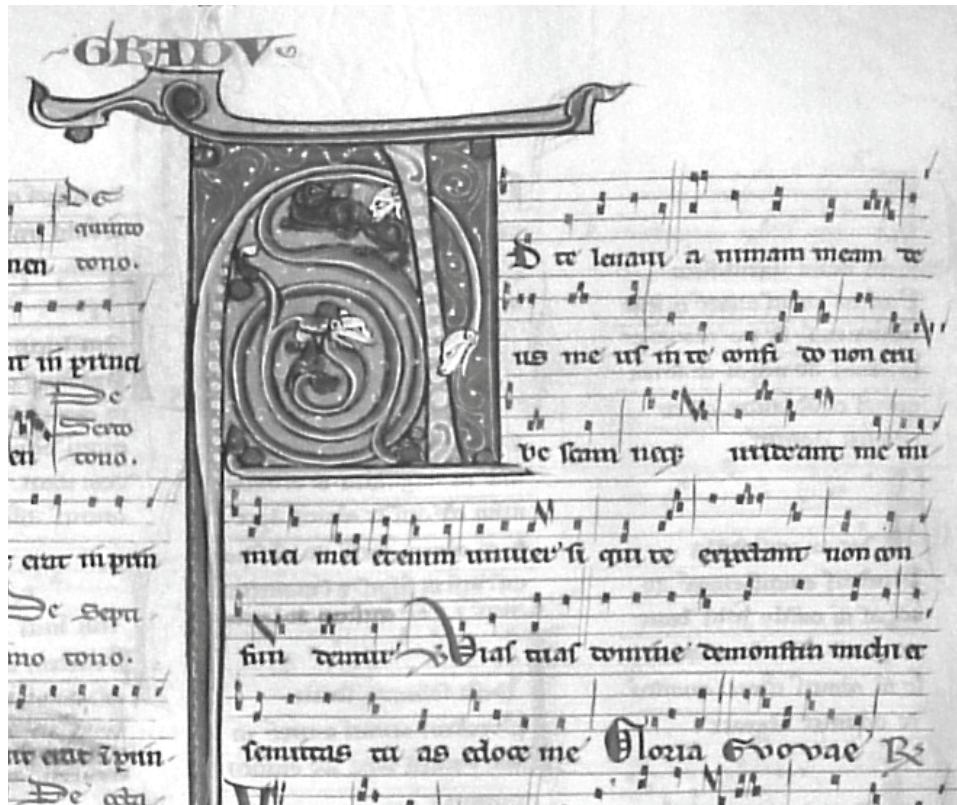 GRADU
De
quinto
men tono.
nt in princi
De
Sexto
en tono.
erat in prin
De Septi
mo tono.
nt erat i prin
De octa
AD te levavi a nimam meam de
us me us in te confi do non eru
be scam neqz irrideant me ini
mici mei etenim univer si qui te expectant non con
fun dentur Vias tuas domine demonstra michi et
semitas tu as edoce me Gloria Evovae R